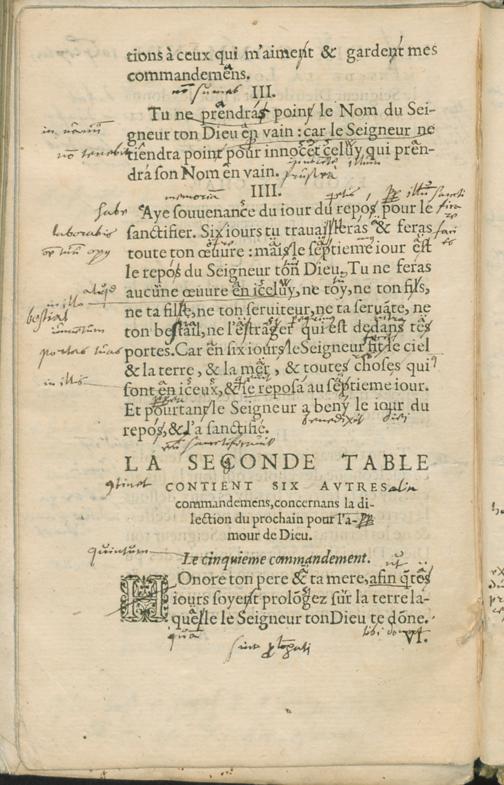 tions à ceux qui m'aiment & gardent mes
commandemẽs.
III.
Tu ne prẽdras point le Nom du Sei-
gneur ton Dieu en vain : car le Seigneur ne
tiendra point pour innocẽt celuy qui prẽn-
dra son Nom en vain.
frustra
IIII.
memoriam
habe
Aye souuenance du iour du repos pour le
laborabis
sanctifier. Six iours tu trauailleras & feras
toute ton œuure : mais le septieme iour est
le repos du Seigneur ton Dieu. Tu ne feras
aucune œuure en iceluy, ne toy, ne ton fils,
in illo
ne ta fille, ne ton seruiteur, ne ta seruãte, ne
bestias
ton bestail, ne l'estrãger qui est dedans tes
portas tuas
portes. Car en six iours le Seigneur fit le ciel
& la terre, & la mer, & toutes choses qui
in illis
sont en iceux, & se reposa au septieme iour.
Et pourtant le Seigneur a beny le iour du
benedixit diei
repos, & l'a sanctifié.
LA SECONDE TABLE
CONTIENT SIX AVTRES
commandemens, concernans la di-
lection du prochain pour l'a-
mour de Dieu.
quintum
Le cinquieme commandement.
ut
HOnore ton pere & ta mere, afin q̃ tes
iours soyent prolõgez sur la terre la-
quelle le Seigneur ton Dieu te dõne.
VI.